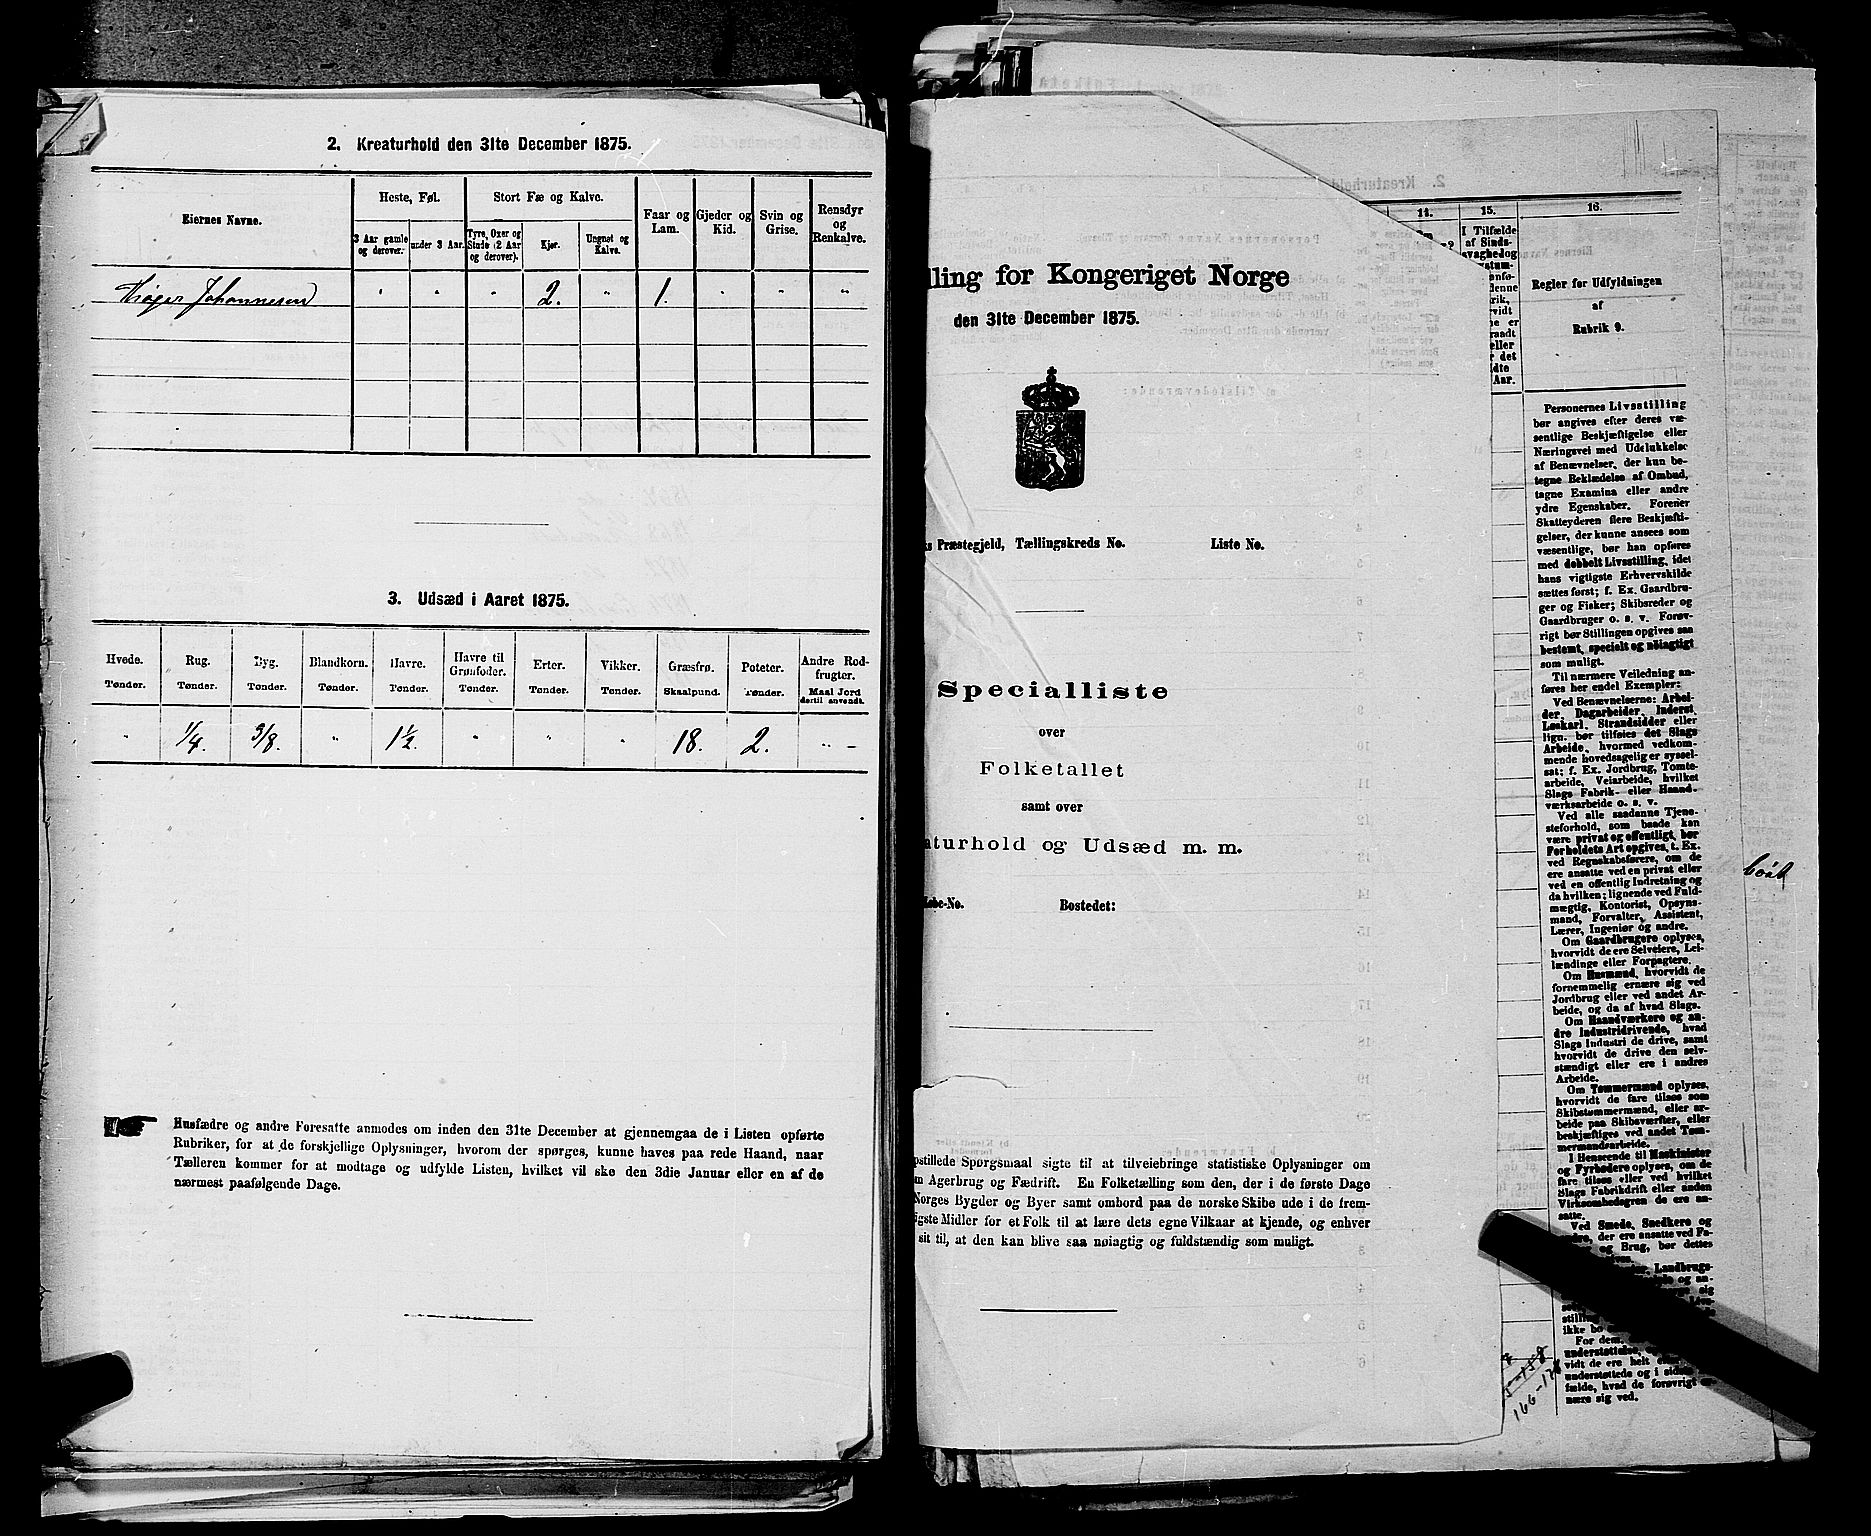 2. Kreaturhold den 31te December 1875.
Eiernes Navne.
Heste, Føl.
Stort Fæ og Kalve.
Faar og Lam.
Gjeder og Kid.
Svin og Grise.
Rensdyr og Renkalve.
3 Aar gamle og derover.
under 3 Aar.
Tyre, Oxer og Stude (2 Aar og derover).
Kjør.
Ungnøt og Kalve.
Johannesen " " " 2. " 1. " " "
3. Udsæd i Aaret 1875.
Hvede. Tønder.
Rug. Tønder.
Byg. Tønder.
Blandkorn. Tønder.
Havre. Tønder.
Havre til Grønfoder. Tønder.
Erter. Tønder.
Vikker. Tønder.
Græsfrø. Skaalpund.
Poteter. Tønder.
Andre Rodfrugter. Maal Jord dertil anvendt.
" 1/4. 3/8. " 1 1/2. " " " 18. 2. " -
Husfædre og andre Foresatte anmodes om inden den 31te December at gjennemgaa de i Listen opførte
Rubriker, for at de forskjellige Oplysninger, hvorom der spørges, kunne haves paa rede Haand, naar
Tælleren kommer for at modtage og udfylde Listen, hvilket vil ske den 3die Januar eller en af de
nærmest paafølgende Dage.
ling for Kongeriget Norge
den 31te December 1875.
ks Præstegjeld, Tællingskreds No. Liste No.
Specialliste
over
Folketallet
samt over
aturhold og Udsæd m. m.
No. Bostedet:
pstillede Spørgsmaal sigte til at tilveiebringe statistiske Oplysninger om
m Agerbrug og Fædrift. En Folketælling som den, der i de første Dage
Norges Bygder og Byer samt ombord paa de norske Skibe ude i de frem-
igste Midler for et Folk til at lære dets egne Vilkaar at kjende, og enhver
sit til, at den kan blive saa nøiagtig og fuldstændig som muligt.
14.
15.
16.
I Tilfælde
af Sinds-
svaghed og
Regler for Udfyldningen
af
Rubrik 9.
Personernes Livsstilling
bør angives efter deres væ-
sentlige Beskjæftigelse eller
Næringsvei med Udelukkelse
af Benævnelser, der kun be-
tegne Beklædelse af Ombud,
tagne Examina eller andre
ydre Egenskaber. Forener
Skatteyderen flere Beskjæfti-
gelser, der kunne ansees som
væsentlige, bør han opføres
med dobbelt Livsstilling, idet
hans vigtigste Erhvervskilde
sættes først; f. Ex. Gaardbru-
ger og Fisker; Skibsreder og
Gaardbruger o. s. v. Forøv-
rigt bør Stillingen opgives saa
bestemt, specielt og nøiagtigt
som muligt.
Til nærmere Veiledning an-
føres her endel Exempler:
Ved Benævnelserne: Arbei-
der, Dagarbeider, Inderst
Løskarl, Strandsidder eller
lign. bør tilføies det Slags
Arbeide, hvormed vedkom-
mende hovedsagelig er syssel-
sat; f. Ex. Jordbrug, Tomte-
arbeide, Veiarbeide, hvilket
Slags Fabrik- eller Haand-
værksarbeide o. s. v.
Ved alle saadanne Tjene-
steforhold, som baade kan
være privat og offentligt, bør
Forholdets Art opgives, t. Ex.
ved Regnskabsførere, om de
ere ansatte ved en privat eller
ved en offentlig Indretning og
da hvilken; lignende ved Fuld-
mægtig, Kontorist, Opsyns-
mand, Forvalter, Assistent,
Lærer, Ingeniør og andre.
Om Gaardbrugere oplyses,
hvorvidt de ere Selveiere, Lei-
lændinge eller Forpagtere.
Om Husmænd, hvorvidt de
fornemmelig ernære sig ved
Jordbrug eller ved andet Ar-
beide, og da af hvad Slags.
Om Haandværkere og an-
dre Industridrivende, hvad
Slags Industri de drive, samt
hvorvidt de drive den selv-
stændigt eller ere i andres
Arbeide.
Om Tømmermænd oplyses,
hvorvidt de fare tilsøs som
Skibstømmermænd, eller ar-
beide paa Skibsværfter, eller
beskjæftiges ved andet Tøm-
mermandsarbeide.
I Henseende til Maskinister
og Fyrbødere oplyses, om de
fare tilsøs eller ved hvilket
Slags Fabrikdrift eller anden
Virksomhed de ere an-
satte.
Ved Smede, Snedkere og
andre, der ere ansatte ved Fa-
og Brug, bør dettes
Landbrugs-
og an-
sig
ikke bo
For dem,
understøttelse,
vidt de ere helt
understøttede og i sid
fælde, hvad de forøvrigt
nære sig ved.
166-178